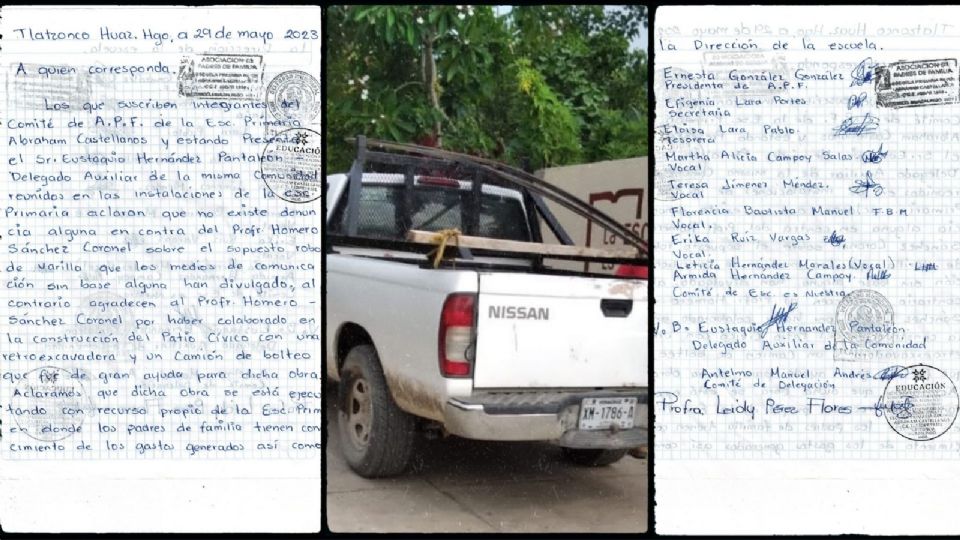 Tlatzonco Huaz. Hgo, a 29 de mayo 2023
A quien corresponda.
ASOCIACION DE
PADRES DE FAMILIA
Los que suscriben integrantes del
Comité de A.P.F. de la Esc. Primaria
Abraham Castellanos y estando Presente
el Sr. Eustaquio Hernández Pantaleón -
Delegado Auxiliar de la misma Comunidad
EDUCACIÓN
reunidos en las instalaciones de la Esc.
Primaria aclaran que no existe denun
cia alguna en contra del Profr. Homero
Sánchez Coronel sobre el supuesto robo
de varilla que los medios de comunica
ción sin base alguna han divulgado, al
contrario agradecen al Profr. Homero -
Sánchez Coronel por haber colaborado en
la construcción del Patio Cívico con una
retroexcavadora y un Camión de bolteo
que fué de gran ayuda para dicha obra.
Aclaramos que dicha obra se está ejecu
tando con recurso propio de la Esc. Prim
en donde los padres de familia tienen con
cimiento de los gastos generados así como
La Esc
NISSAN
XM-1786-A
la Dirección de la escuela.
Ernesta González González
Presidenta de A.P.F.
ASOCIACION DE
PADRES DE FAMILIA
Efigenia Lara Portes
Secretaria
Eloisa Lara Pablo.
Tesorera
Martha Alicia Campoy Salas.
Vocal
Teresa Jimenez Méndez.
Vocal
Florencia Bautista Manuel F.B.M
Vocal.
Erika Ruiz Vargas
Vocal.
Leticia Hernández Morales (Vocal)
Armida Hernández Campoy
Comité de Esc. es Nuestra.
Vo. Bo. Eustaquio Hernandez Pantaleon
Delegado Auxiliar de la Comunidad
Antelmo Manuel Andrés
Comité de Delegación
EDUCACIÓN
Profra. Leidy Pérez Flores